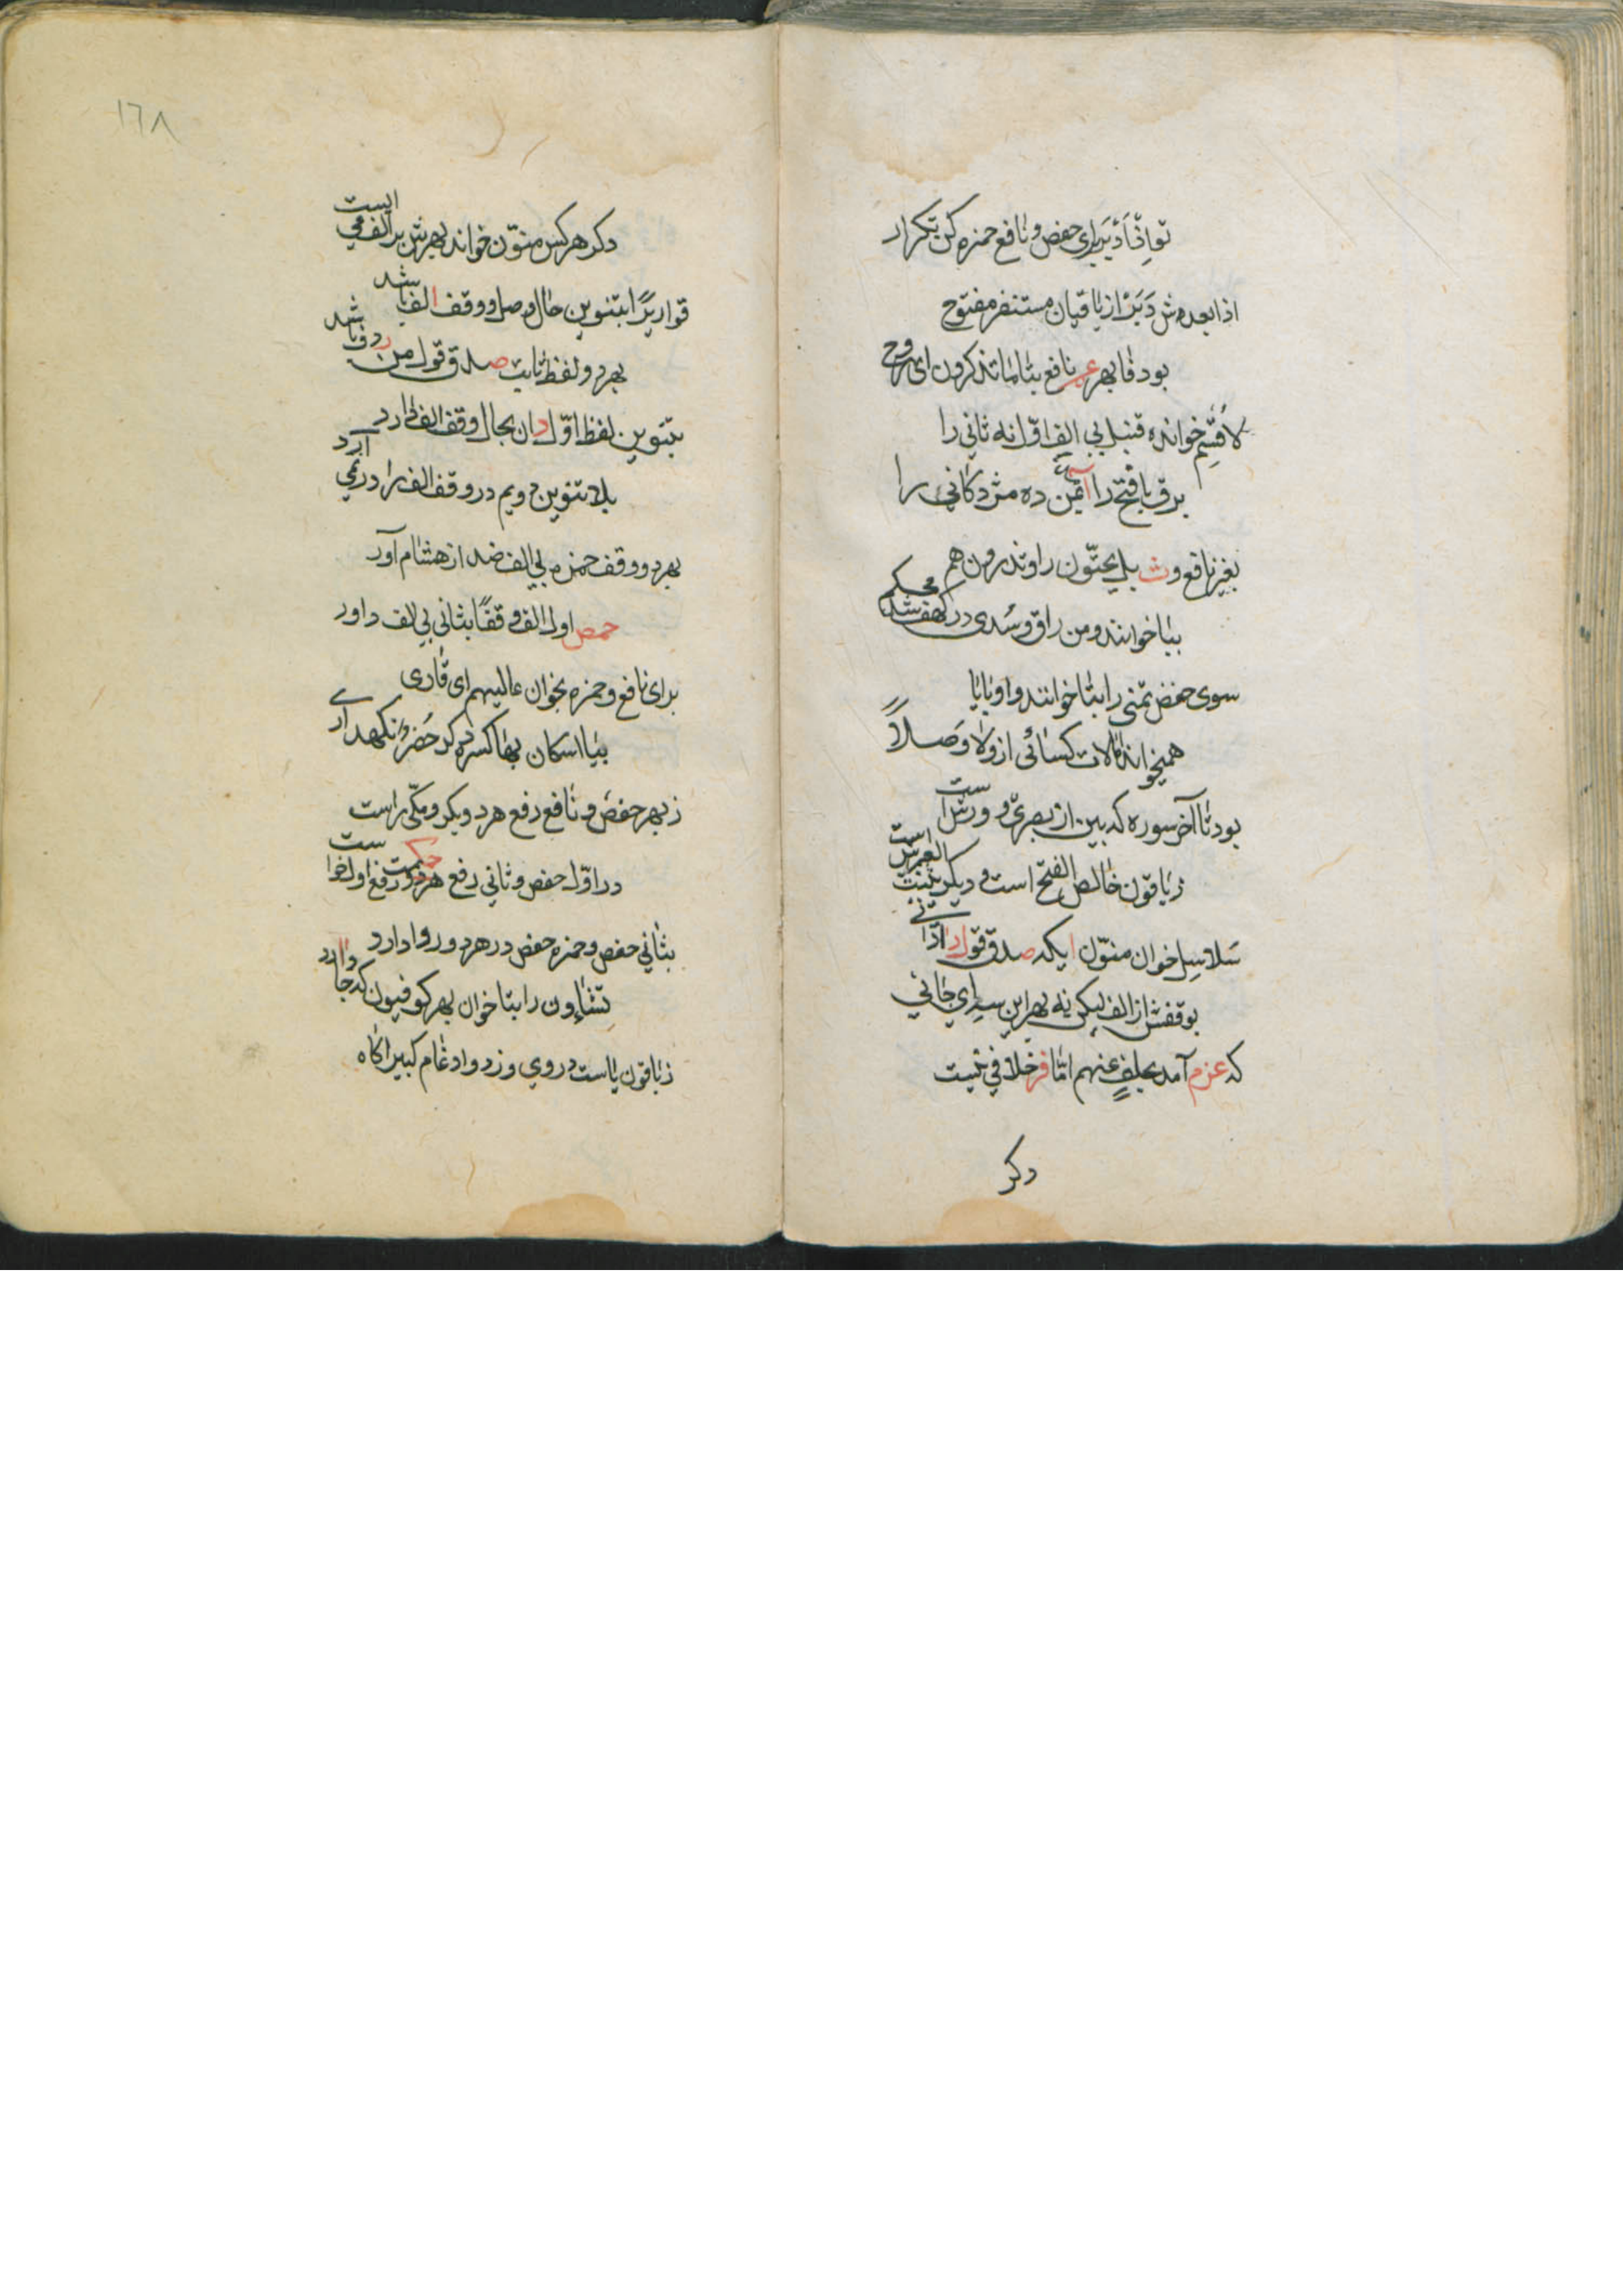 تو اِذْ اَدْبَرَ برای حفص و نافع حمزه کن تکرار
اذا بعدش دَبَرَ از باقیان مستنفر مفتوح
بود فا بهر عم نافع بتا ما تذکرون ای روح
لَاُقْسِم خوانده قنبل بی الف اوّل نه ثانی را
برق با فتح را آمن ده مژدگانی را
بغیر نافع و ث بل یحبّون را و تذرون هم
بیا خوانند و من راق و سُدی در کهف شد محکم
سوی حفض تمنی را بتا خوانند و او با یا
همیخواند امالات کسائی از ولا وصلاً
بود تا آخر سوره که بین از بصری و ورش است
ز باقون خالص الفتح است و دیگر
سَلاسِل خوان منوّن ایکه صدق قول
بوقفش از الف لیکن نه بهر این سه ای جانی
که عزم آمد بخلفٍ عنهم امّا فز خلافی نیست
دکر
١٦٨
دکر هر کس منوّن خواند بهرش بر الف می ایست
قواریرًا بتنوین حال وصل و وقف الف باشد
بهر دو لفظ ثابت صدق قول من رد فا شد
بتنوین لفظ اوّل دان بحال وقف الف دارد
بلا تنوین دویم در وقف الف را در نمی آرد
بهر دو وقف حمزه بی الف ضد از هشام آور
حمص اول الف وقفًا بثانی بی الف داور
برای نافع و حمزه بخوان عالیهم ای قاری
بیا اسکان بها کسره دکر خُضر و نکهداری
ز بهر حفص و نافع رفع هر دو بکر و مکّی راست
در اوّل حفض و ثانی رفع هر دو رفع اول خواست
بثانی حفض و حمزه حفض در هر دو روا دارد
تشاءون را بتا خوان بهر کوفیون که جا دارد
ز باقون یاست در وی وز دو ادغام کبیر آکاه